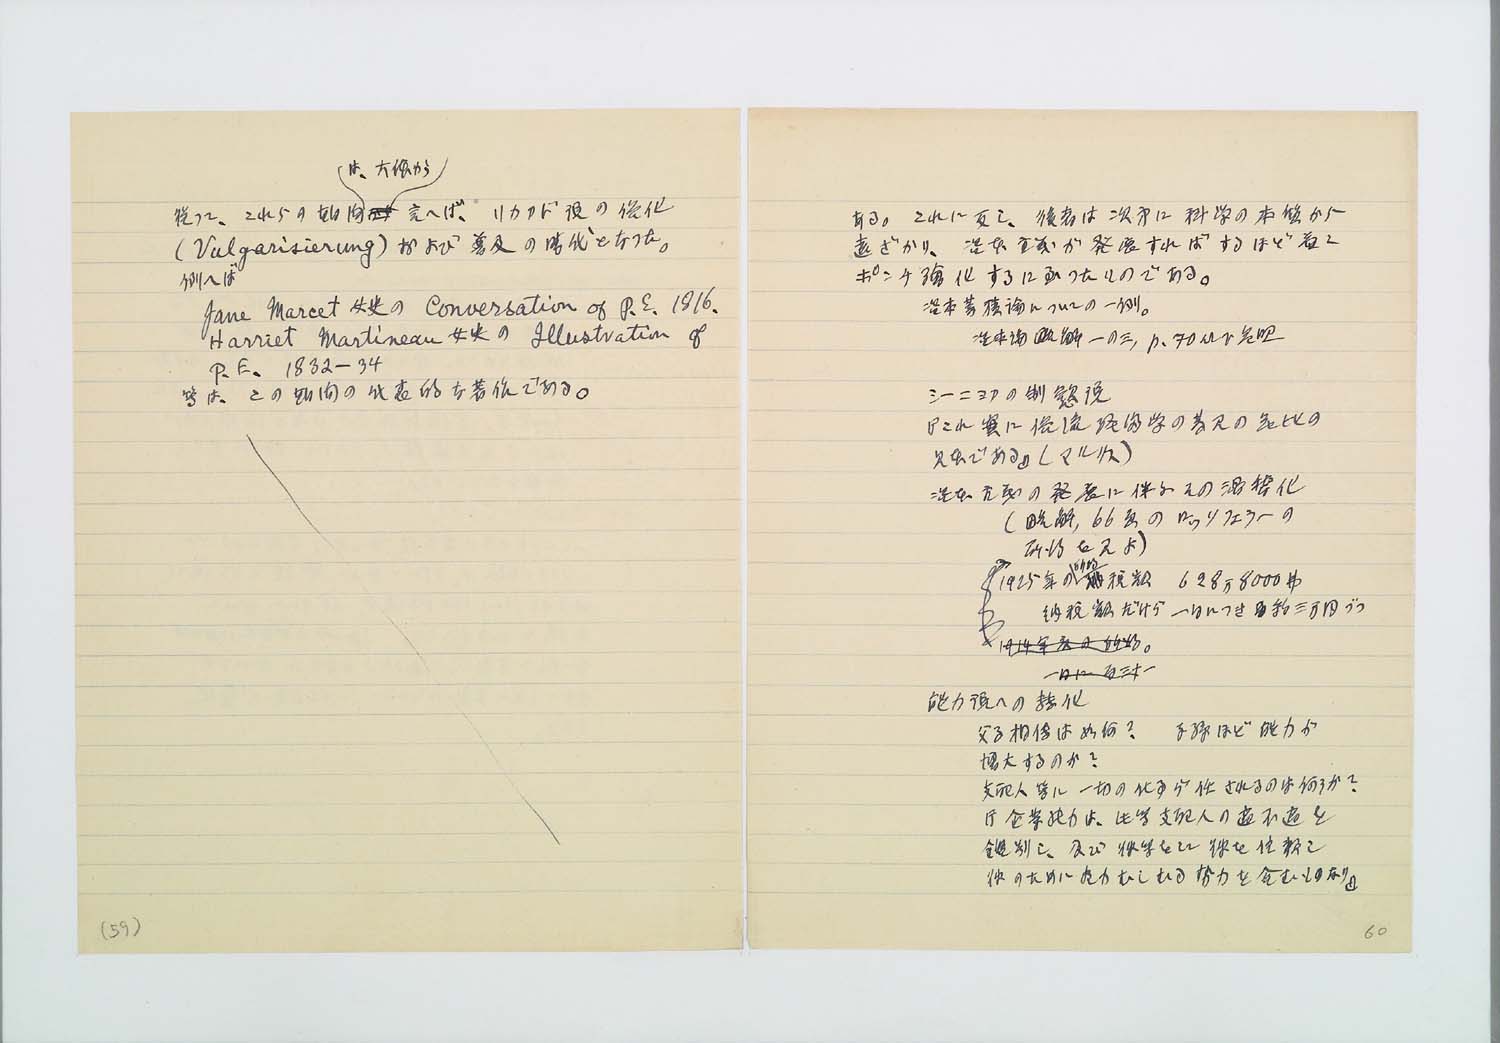 は、大体から
従つて、これらの傾向 言へば、リカアド説の俗化
(Vulgarisierung) および普及の時代となつた。
例へば
Jane Marcet 女史の Conversation of P.E. 1816.
Harriet Martineau 女史の Illustration of
P.E. 1832—34
等は、この傾向の代表的な著作である。
(59)
ある。これに反し、後者は次第に科学の本質から
遠ざかり、資本主義が発展すればするほど益々
ポンチ繪化するに至つたものである。
資本蓄積論についての一例。
資本論略解一の三, p.70以下参照
シーニヨアの制慾説
『これ実に俗流経済学の発見の無比の
見本である』(マルクス)
資本主義の発展に伴ふその滑稽化
(略解, 66頁のロックフェラーの
所得を見よ)
1925年の 納税額 628万8000弗
納税額だけで 一日につき 約三万円づつ
1914年度の所得。
一日に 百三十一
能力説への転化
父子相伝は如何? 子孫ほど能力が
増大するのか?
支配人等に一切の仕事が任されるのは何うか?
『企業能力は、此等支配人の適不適を
鑑別し、及び 彼等をして彼を信頼し
彼のために尽力せしむる勢力を含むものなり』
60